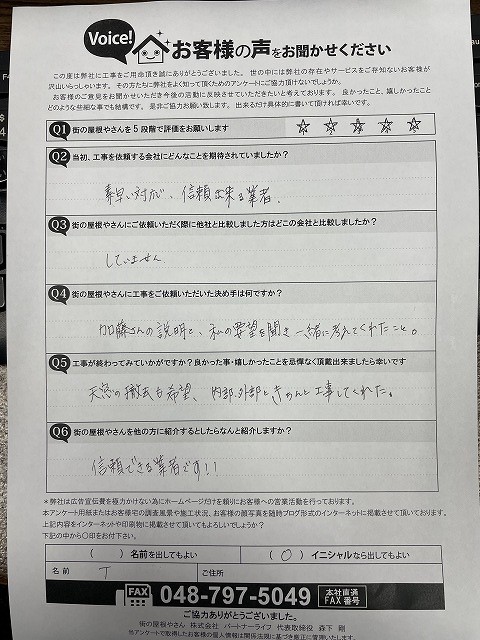 Voice! お客様の声をお聞かせください
この度は弊社に工事をご用命頂き誠にありがとうございました。世の中には弊社の存在やサービスをご存知ないお客様が
沢山いらっしゃいます。その方たちに弊社をよく知って頂くためのアンケートにご協力頂けないでしょうか。
お客様のご意見をお聞かせいただき今後の活動に反映させていただきたいと考えております。良かったこと、嬉しかったこと
どのような些細な事でも結構です。是非ご協力お願い致します。出来るだけ具体的に書いて頂ければ幸いです。
Q1 街の屋根やさんを5段階で評価をお願いします ☆ ☆ ☆ ☆ ☆
Q2 当初、工事を依頼する会社にどんなことを期待されていましたか?
素早い対応、信頼出来る業者.
Q3 街の屋根やさんにご依頼いただく際に他社と比較しました方はどこの会社と比較しましたか?
していません
Q4 街の屋根やさんに工事をご依頼いただいた決め手は何ですか?
加藤さんの説明と、私の要望を聞き一緒に考えてくれたこと。
Q5 工事が終わってみていかがですか?良かった事・嬉しかったことを忌憚なく頂戴出来ましたら幸いです
天窓の撤去も希望、内部.外部ときちんと工事してくれた。
Q6 街の屋根やさんを他の方に紹介するとしたらなんと紹介しますか?
信頼できる業者です!!
*弊社は広告宣伝費を極力かけない為にホームページだけを頼りにお客様への営業活動を行っております。
本アンケート用紙またはお客様宅の調査風景や施工状況、お客様の顔写真を随時ブログ形式のインターネットに掲載させて頂いております。
上記内容をインターネットや印刷物に掲載させて頂いてもよろしいでしょうか?
下記の中から〇印をお付下さい。
( ) 名前を出してもよい ( 〇 ) イニシャルなら出してもよい
名前 T ご住所
FAX 048-797-5049 本社直通 FAX番号
ご協力ありがとうございました。
街の屋根やさん 株式会社 パートナーライフ 代表取締役 森下 剛
当アンケートで取得したお客様の個人情報は関係法規に基づき厳正に管理いたします。